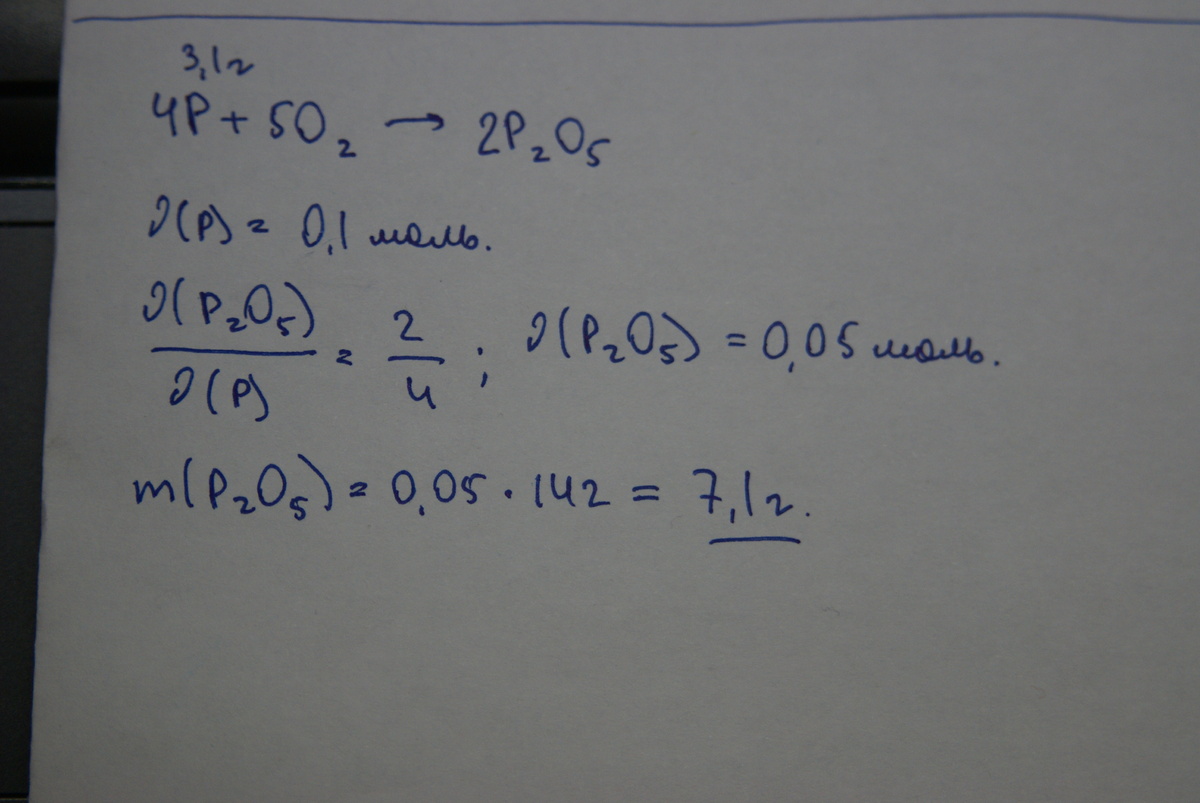 3,1г
4P + 5O₂ → 2P₂O₅
ν(P) = 0,1 моль.
ν(P₂O₅) / ν(P) = 2/4 ; ν(P₂O₅) = 0,05 моль.
m(P₂O₅) = 0,05 · 142 = 7,1г.